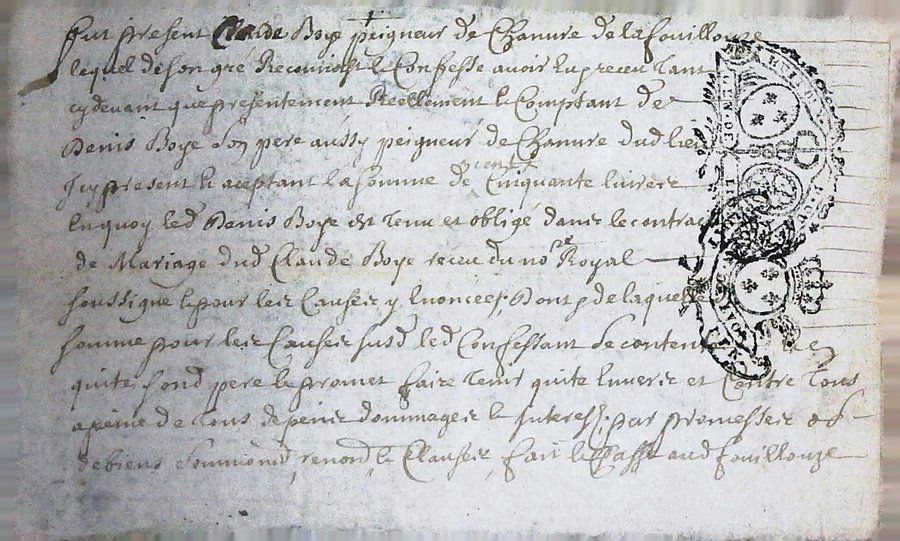 fut present Claude Boye peigneur de Chanvre de lafouillouze
lequel de son gré Reconnoist & Confesse avoir eu & receu tant
cydevant que presentement Reellement & Comptant de
Denis Boye son pere aussy peigneur de Chanvre dud lieu
Icy present & aceptant la somme de cent Cinquante livres
En quoy led Denis Boye est tenu et obligé dans le contract
de Mariage dud Claude Boye receu du no.re Royal
soussigné & pour les Causes y Enoncees, Dont & de laquelle
somme pour les Causes susd led Confessant se contente
quite sond pere & promet faire tenir quite Envers et Contre tous
a peine de tous depens dommages & Interests par promesses ob
de biens soumiond, renond, & Clauses, fait & passé aud fouillouze